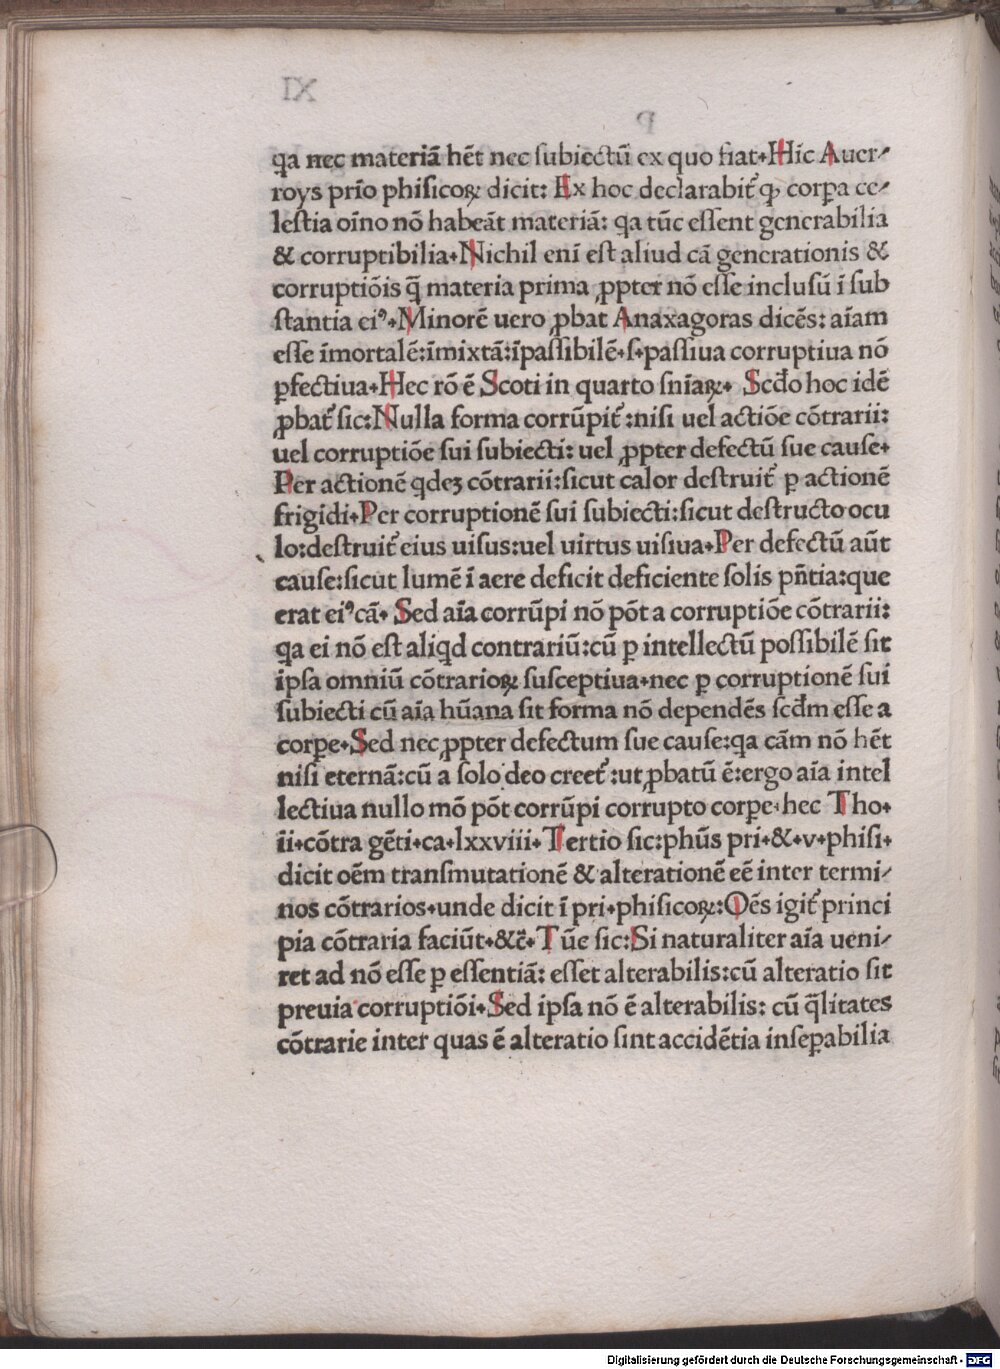 qa nec materiā hēt nec ſubiectū ex quo fiat. Hīc Auer⸗
roys prīo phiſicoꝝ dicit: Ex hoc declarabit᷑ ꝙ corꝑa ce⸗
leſtia oīno nō habeāt materiā: qa tūc eſſent generabilia
& corruptibilia. Nichil enī eſt aliud cā generationis &
corruptiōis q̄ materia prima ꝓpter nō eſſe incluſū ī ſub
ſtantia eiꝰ. Minorē uero ꝓbat Anaxagoras dicēs: aīam
eſſe īmortalē: īmixtā: īpaſſibilē. ſ. paſſiua corruptiua nō
ꝑfectiua. Hec rō ē Scoti in quarto ſnīaꝝ. Scd̄o hoc idē
ꝓbat᷑ ſic: Nulla forma corrūpit᷑: niſi uel actiōe cōtrarii:
uel corruptiōe ſui ſubiecti: uel ꝓpter defectū ſue cauſe.
Per actionē qdeꝫ cōtrarii: ſicut calor deſtruit᷑ ꝑ actionē
frigidi. Per corruptionē ſui ſubiecti: ſicut deſtructo ocu
lo: deſtruit᷑ eius uiſus: uel uirtus uiſiua. Per defectū aūt
cauſe: ſicut lumē ī aere deficit deficiente ſolis pn̄tia: que
erat eiꝰ cā. Sed aīa corrūpi nō pōt a corruptiōe cōtrarii:
qa ei nō eſt aliqd contrariū: cū ꝑ intellectū poſſibilē ſit
ipſa omniū cōtrarioꝝ ſuſceptiua. nec ꝑ corruptionē ſui
ſubiecti cū aīa hūana ſit forma nō dependēs ſcd̄m eſſe a
corꝑe. Sed nec ꝓpter defectum ſue cauſe: qa cām nō hēt
niſi eternā: cū a ſolo deo creet᷑: ut ꝓbatū ē: ergo aīa intel
lectiua nullo mō pōt corrūpi corrupto corꝑe. hec Tho.
ii. cōtra gēti. ca. lxxviii. Tertio ſic: phūs pri. &. v. phiſi.
dicit oēm tranſmutationē & alterationē eē inter termi⸗
nos cōtrarios. unde dicit ī pri. phiſicoꝝ: Oēs igit᷑ princi
pia cōtraria faciūt. &c̄. Tūc ſic: Si naturaliter aīa ueni⸗
ret ad nō eſſe ꝑ eſſentiā: eſſet alterabilis: cū alteratio ſit
preuia corruptiōi. Sed ipſa nō ē alterabilis: cū q̄litates
cōtrarie inter quas ē alteratio ſint accidētia inſeꝑabilia
Digitalisierung gefördert durch die Deutsche Forschungsgemeinschaft - DFG